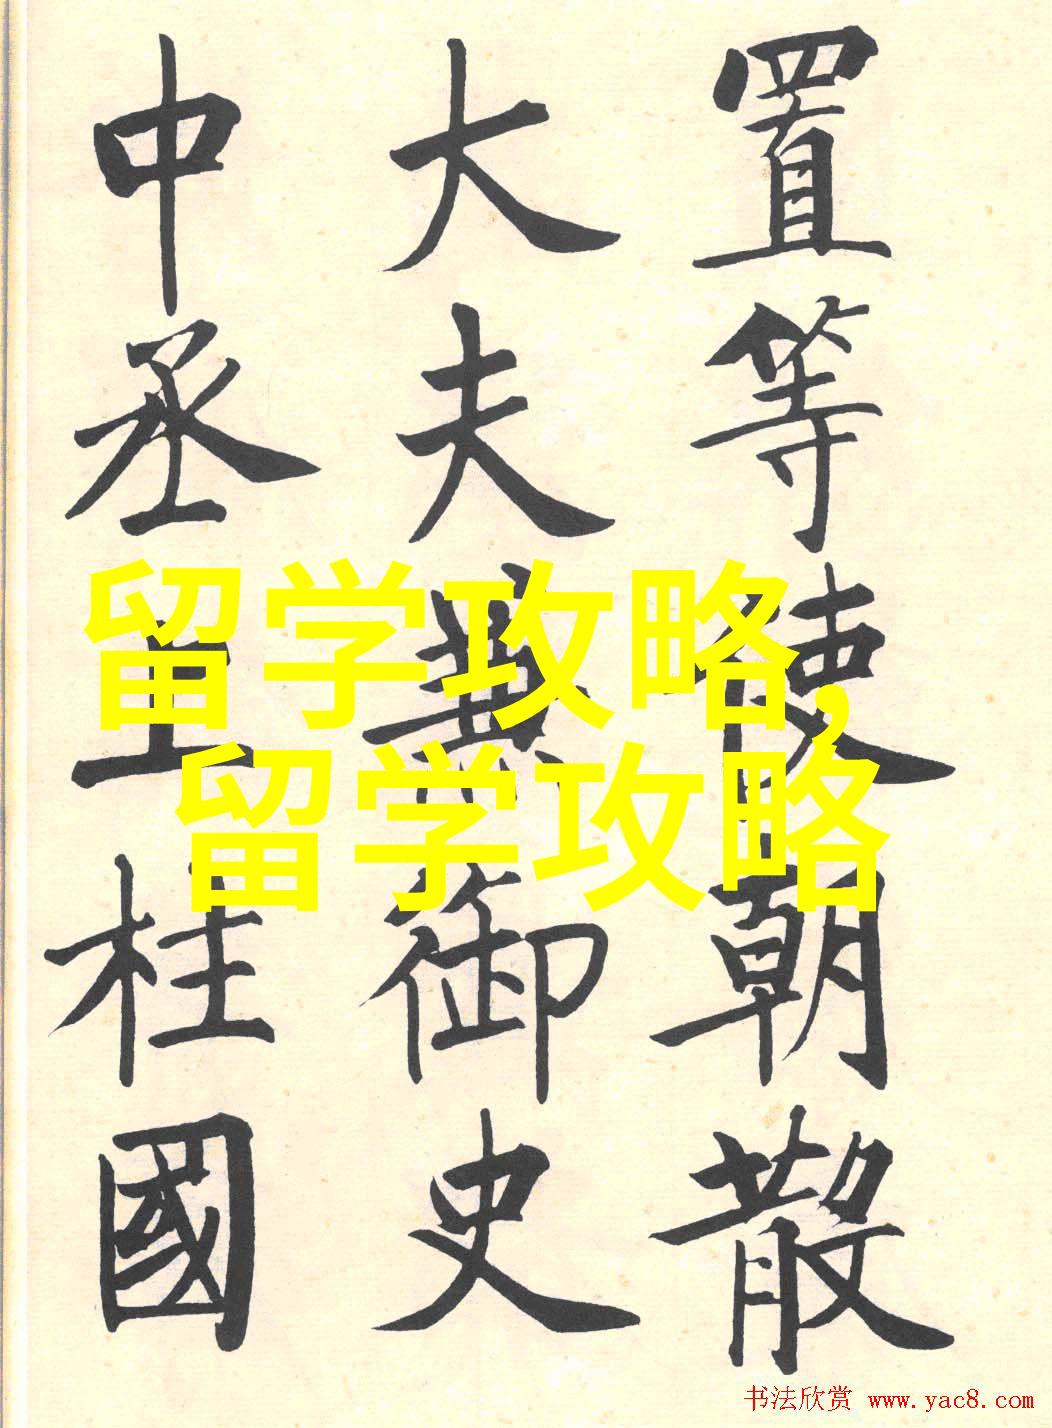 置等使朝散
大夫兼御史
中丞上柱國
留学攻略,
留学攻略
书法欣赏 www.yac8.com